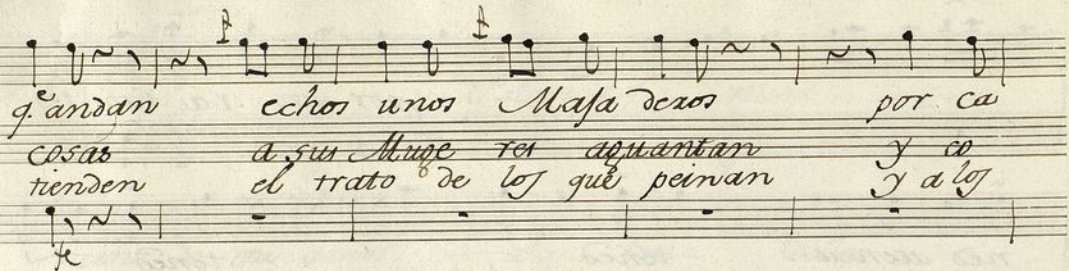 q.e andan echos unos Masa deros por ca
cosas a sus Muge res aguantan y co
tienden el trato de los que peinan y a los
fe